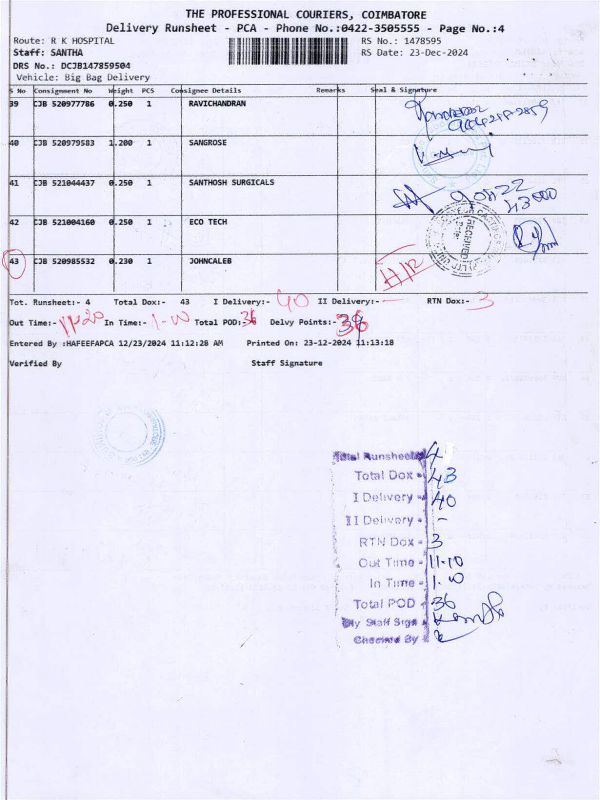 THE PROFESSIONAL COURIERS, COIMBATORE
Delivery Runsheet - PCA - Phone No.:0422-3505555 - Page No.:4
Route: R K HOSPITAL
RS No.: 1478595
Staff: SANTHA
RS Date: 23-Dec-2024
DRS No.: DCJB147859504
Vehicle: Big Bag Delivery
S No Consignment No Weight PCS Consignee Details Remarks Seal & Signature
39 CJB 520977786 0.250 1 RAVICHANDRAN
40 CJB 520979583 1.200 1 SANGROSE
41 CJB 521044437 0.250 1 SANTHOSH SURGICALS
90822
43000
42 CJB 521004160 0.250 1 ECO TECH
RECEIVED
43 CJB 520985532 0.230 1 JOHNCALEB
Tot. Runsheet:- 4 Total Dox:- 43 I Delivery:- 40 II Delivery:- — RTN Dox:- 3
Out Time:- In Time:- Total POD:- 36 Delvy Points:- 36
Entered By :HAFEEFAPCA 12/23/2024 11:12:28 AM Printed On: 23-12-2024 11:13:18
Verified By Staff Signature
Total Runsheet 4
Total Dox - 43
I Delivery - 40
II Delivery - -
RTN Dox - 3
Out Time - 11-10
In Time -
Total POD - 36
Dly Staff Sign
Checked By